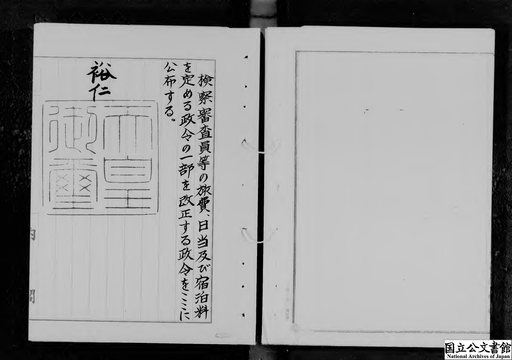 検察審査員等の旅費、日当及び宿泊料
を定める政令の一部を改正する政令をここに
公布する。
裕仁
天皇
御璽
内閣
国立公文書館
National Archives of Japan